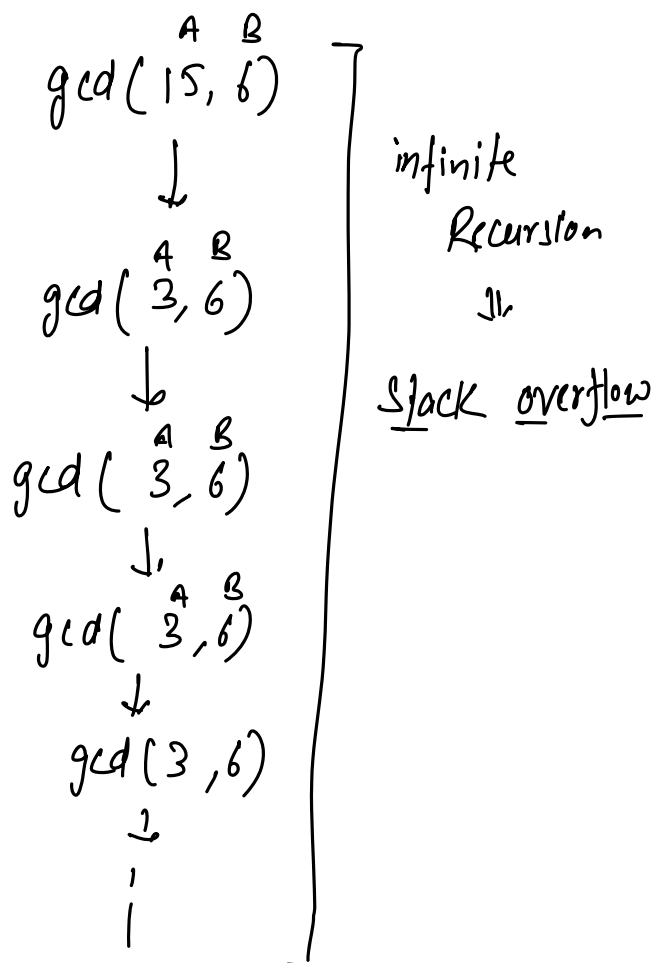 A B
gcd( 15, 6)
A B
gcd( 3, 6)
A B
gcd( 3, 6)
A B
gcd( 3, 6)
gcd(3, 6)
infinite
Recursion
Stack overflow